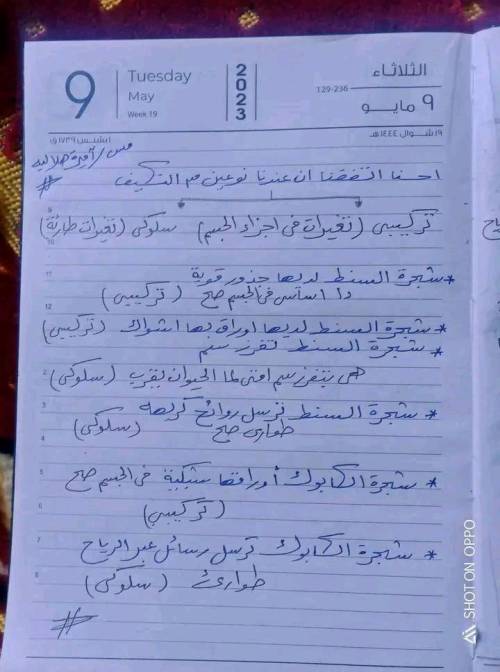 9
Tuesday
May
Week 19
2023
129-236
الثلاثاء
٩ مايــو
١٩ شــوال ١٤٤٤هـ
١ بشنس ١٧٣٩ق
مس/أميرة هلاليه
احنا اتفقنا ان عندنا نوعين من التكيف
تركيبى (تغيرات فى اجزاء الجسم) سلوكى (تغيرات طارئة)
* شجرة السنط لديها جذور قوية
دا اساسى فى الجسم صح (تركيبى)
* شجرة السنط لديها اوراق بها اشواك (تركيبى)
* شجرة السنط تفرز سم
هى بتفرز سم امتى لما الحيوان يقرب (سلوكى)
* شجرة السنط ترسل روائح كريهه
طوارئ صح (سلوكى)
* شجرة الكابوك أوراقها شبكية فى الجسم صح
(تركيبي)
* شجرة الكابوك ترسل رسائل عبر الرياح
طوارئ (سلوكى)
9
10
11
12
2
3
4
5
6
7
8
SHOT ON OPPO